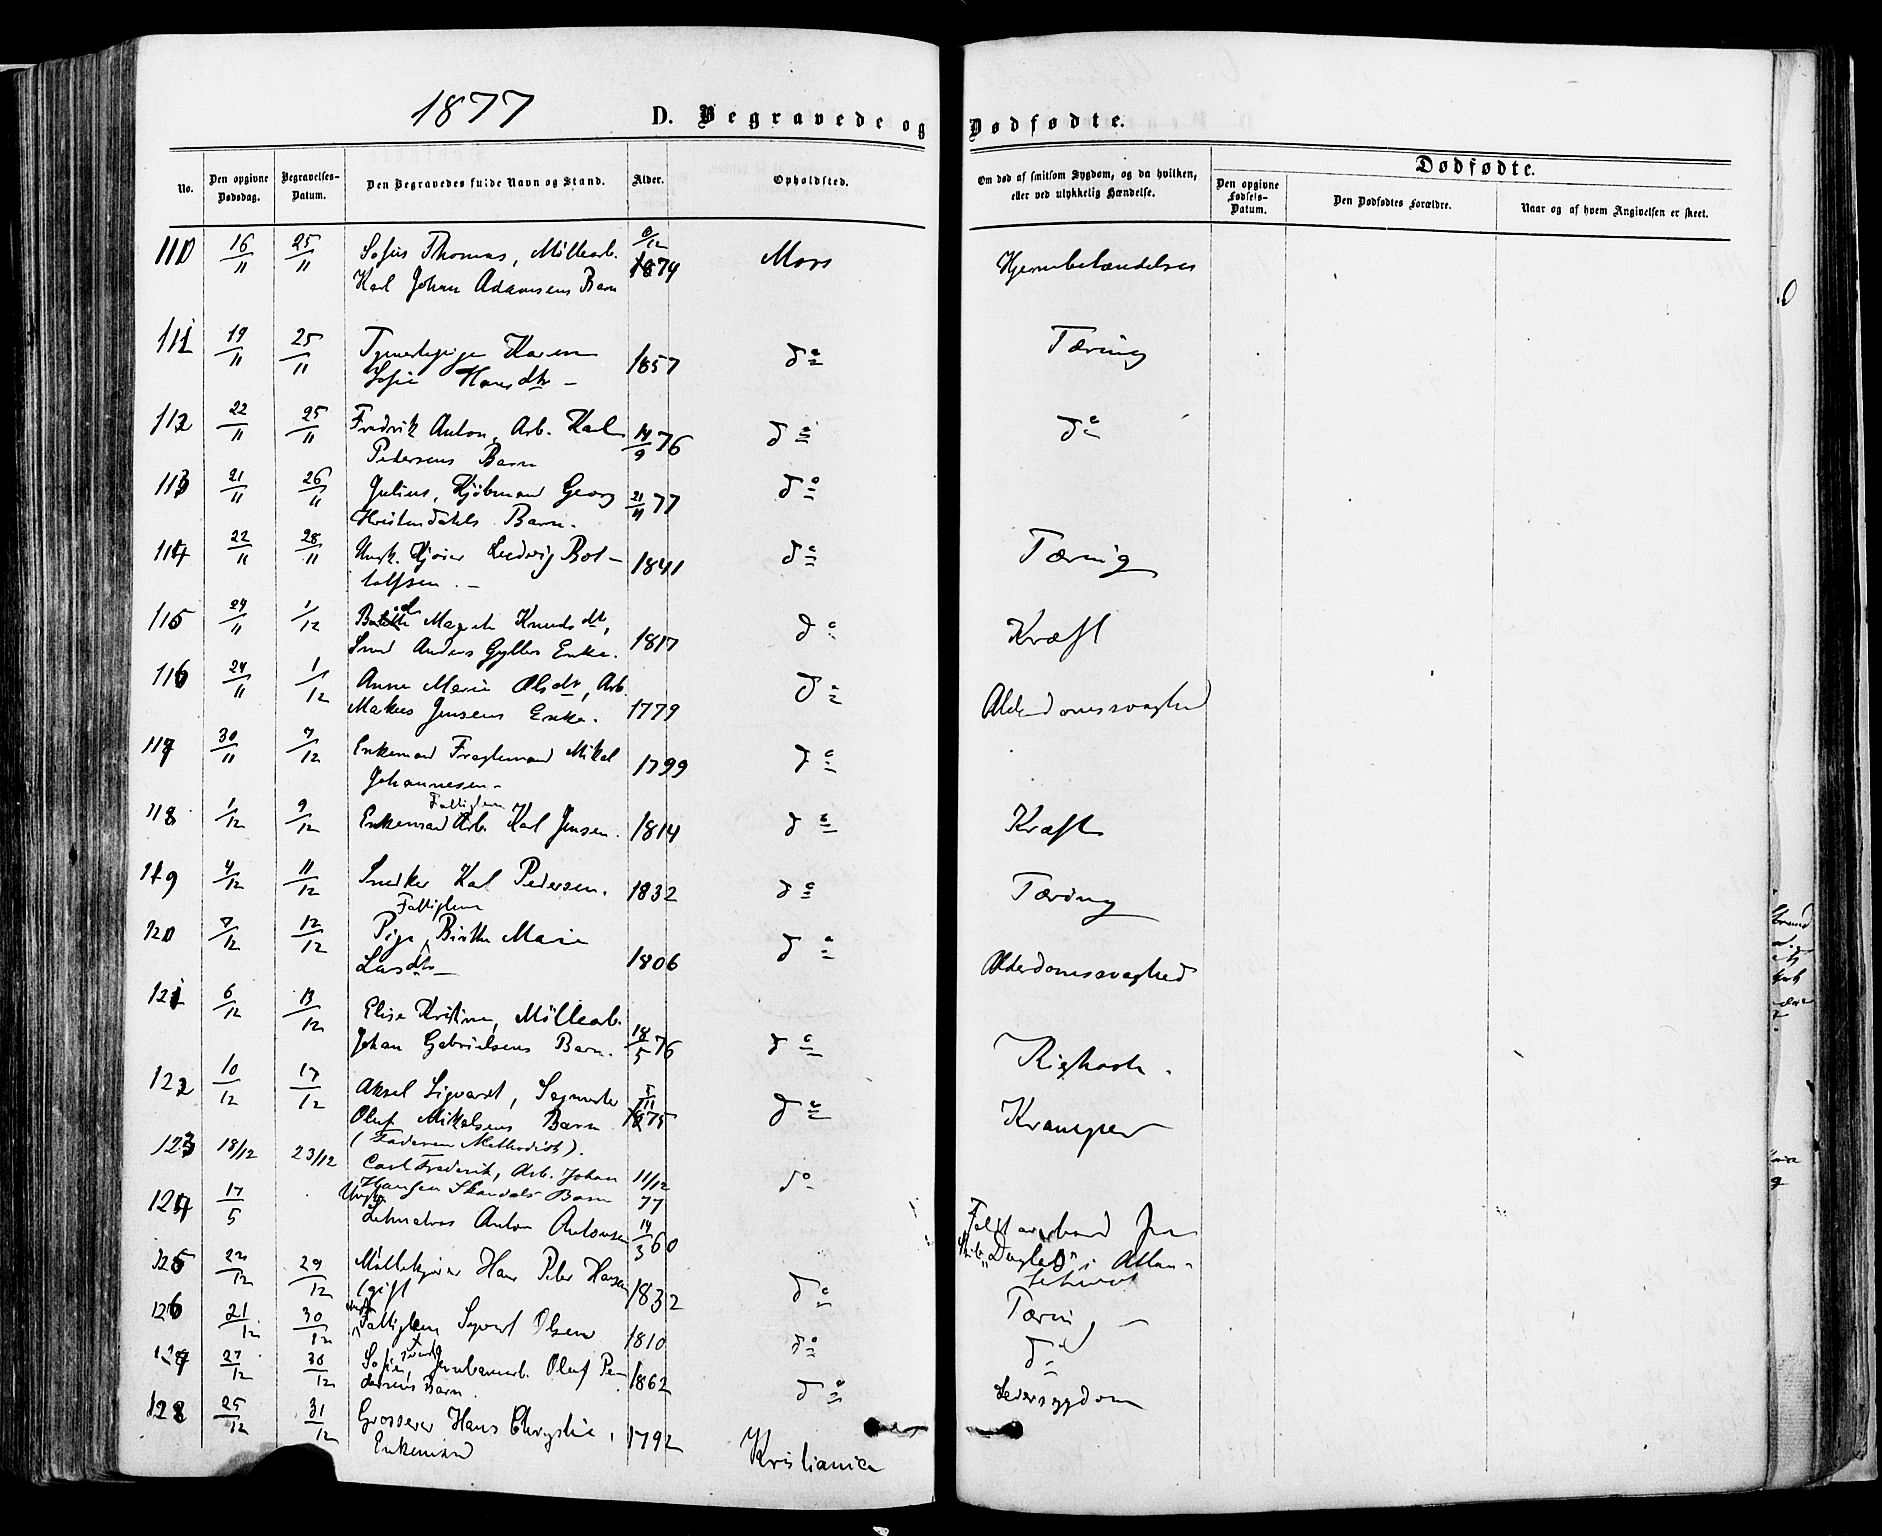 1877
D. Begravede og Dødfødte.
No.
Den opgivne Dødsdag.
Begravelses-Datum.
Den Begravedes fulde Navn og Stand.
Alder.
Opholdsted.
Om død af smitsom Sygdom, og da hvilken, eller ved ulykkelig Hændelse.
Dødfødte.
Den opgivne Fødsels-Datum.
Den Dødfødtes Forældre.
Naar og af hvem Angivelsen er skeet.
110 16/11 25/11 Sofus Thomas, Möllearb. Moss
Karl Johan Adamsens Barn 1874
111 19/11 25/11 Karen 1857 do Tæring
Sofie Hansdtr
112 22/11 25/11 Fredrik Anton, Arb. Karl 14/9 76 do do
Pedersens Barn
113 21/11 26/11 Julius, Kjøbmand Georg 21/11 77 do
Kristendahls Barn.
114 22/11 28/11 Ungk. Ludvig Bot- 1841 do Tæring
tolfsen
115 24/11 1/12 Knudsdtr, 1817 do Kræft
Smed Anders Gyllers Enke.
116 24/11 1/12 Anne Marie Olsdtr, Arb. do Alderdomssvaghed
Markus Jensens Enke. 1779
117 30/11 7/12 Enkemand Mikal 1799 do
Johannesen
118 1/12 9/12 Enkemand Arb. Karl Jensen. 1814 do Kræft
119 4/12 11/12 Snedker Karl Pedersen. 1832 do Tæring
Fattiglem
120 7/12 12/12 Pige Birthe Marie 1806 do Alderdomssvaghed
Larsdtr
121 6/12 13/12 Elise Kristine, Möllearb.
Johan Gabrielsens Barn. 18/5 76 do
122 10/12 17/12 Aksel Sigvardt, do Kramper
Oluf Mikalsens Barn 1875
(Faderen Methodist).
123 18/12 23/12 Carl Frederik, Arb. Johan 11/12 do
Hansen Skandals Barn 77
124 17/5 Ungk. Letmatros Anton Antonsen 14/3 60 Faldt overbord fra
Skib i Atlan-
125 22/12 29/12 Hans Peter Hansen 1832 do Tæring
(gift
126 21/12 30/12 Fattiglem Syvert Olsen 1810 do do
127 27/12 30/12 Sofie, Jernbanearb. Oluf Pe- 1862 do Leversygdom
dersens Barn.
128 25/12 31/12 Grosserer Hans Chrystie, 1792 Kristiania
Enkemand